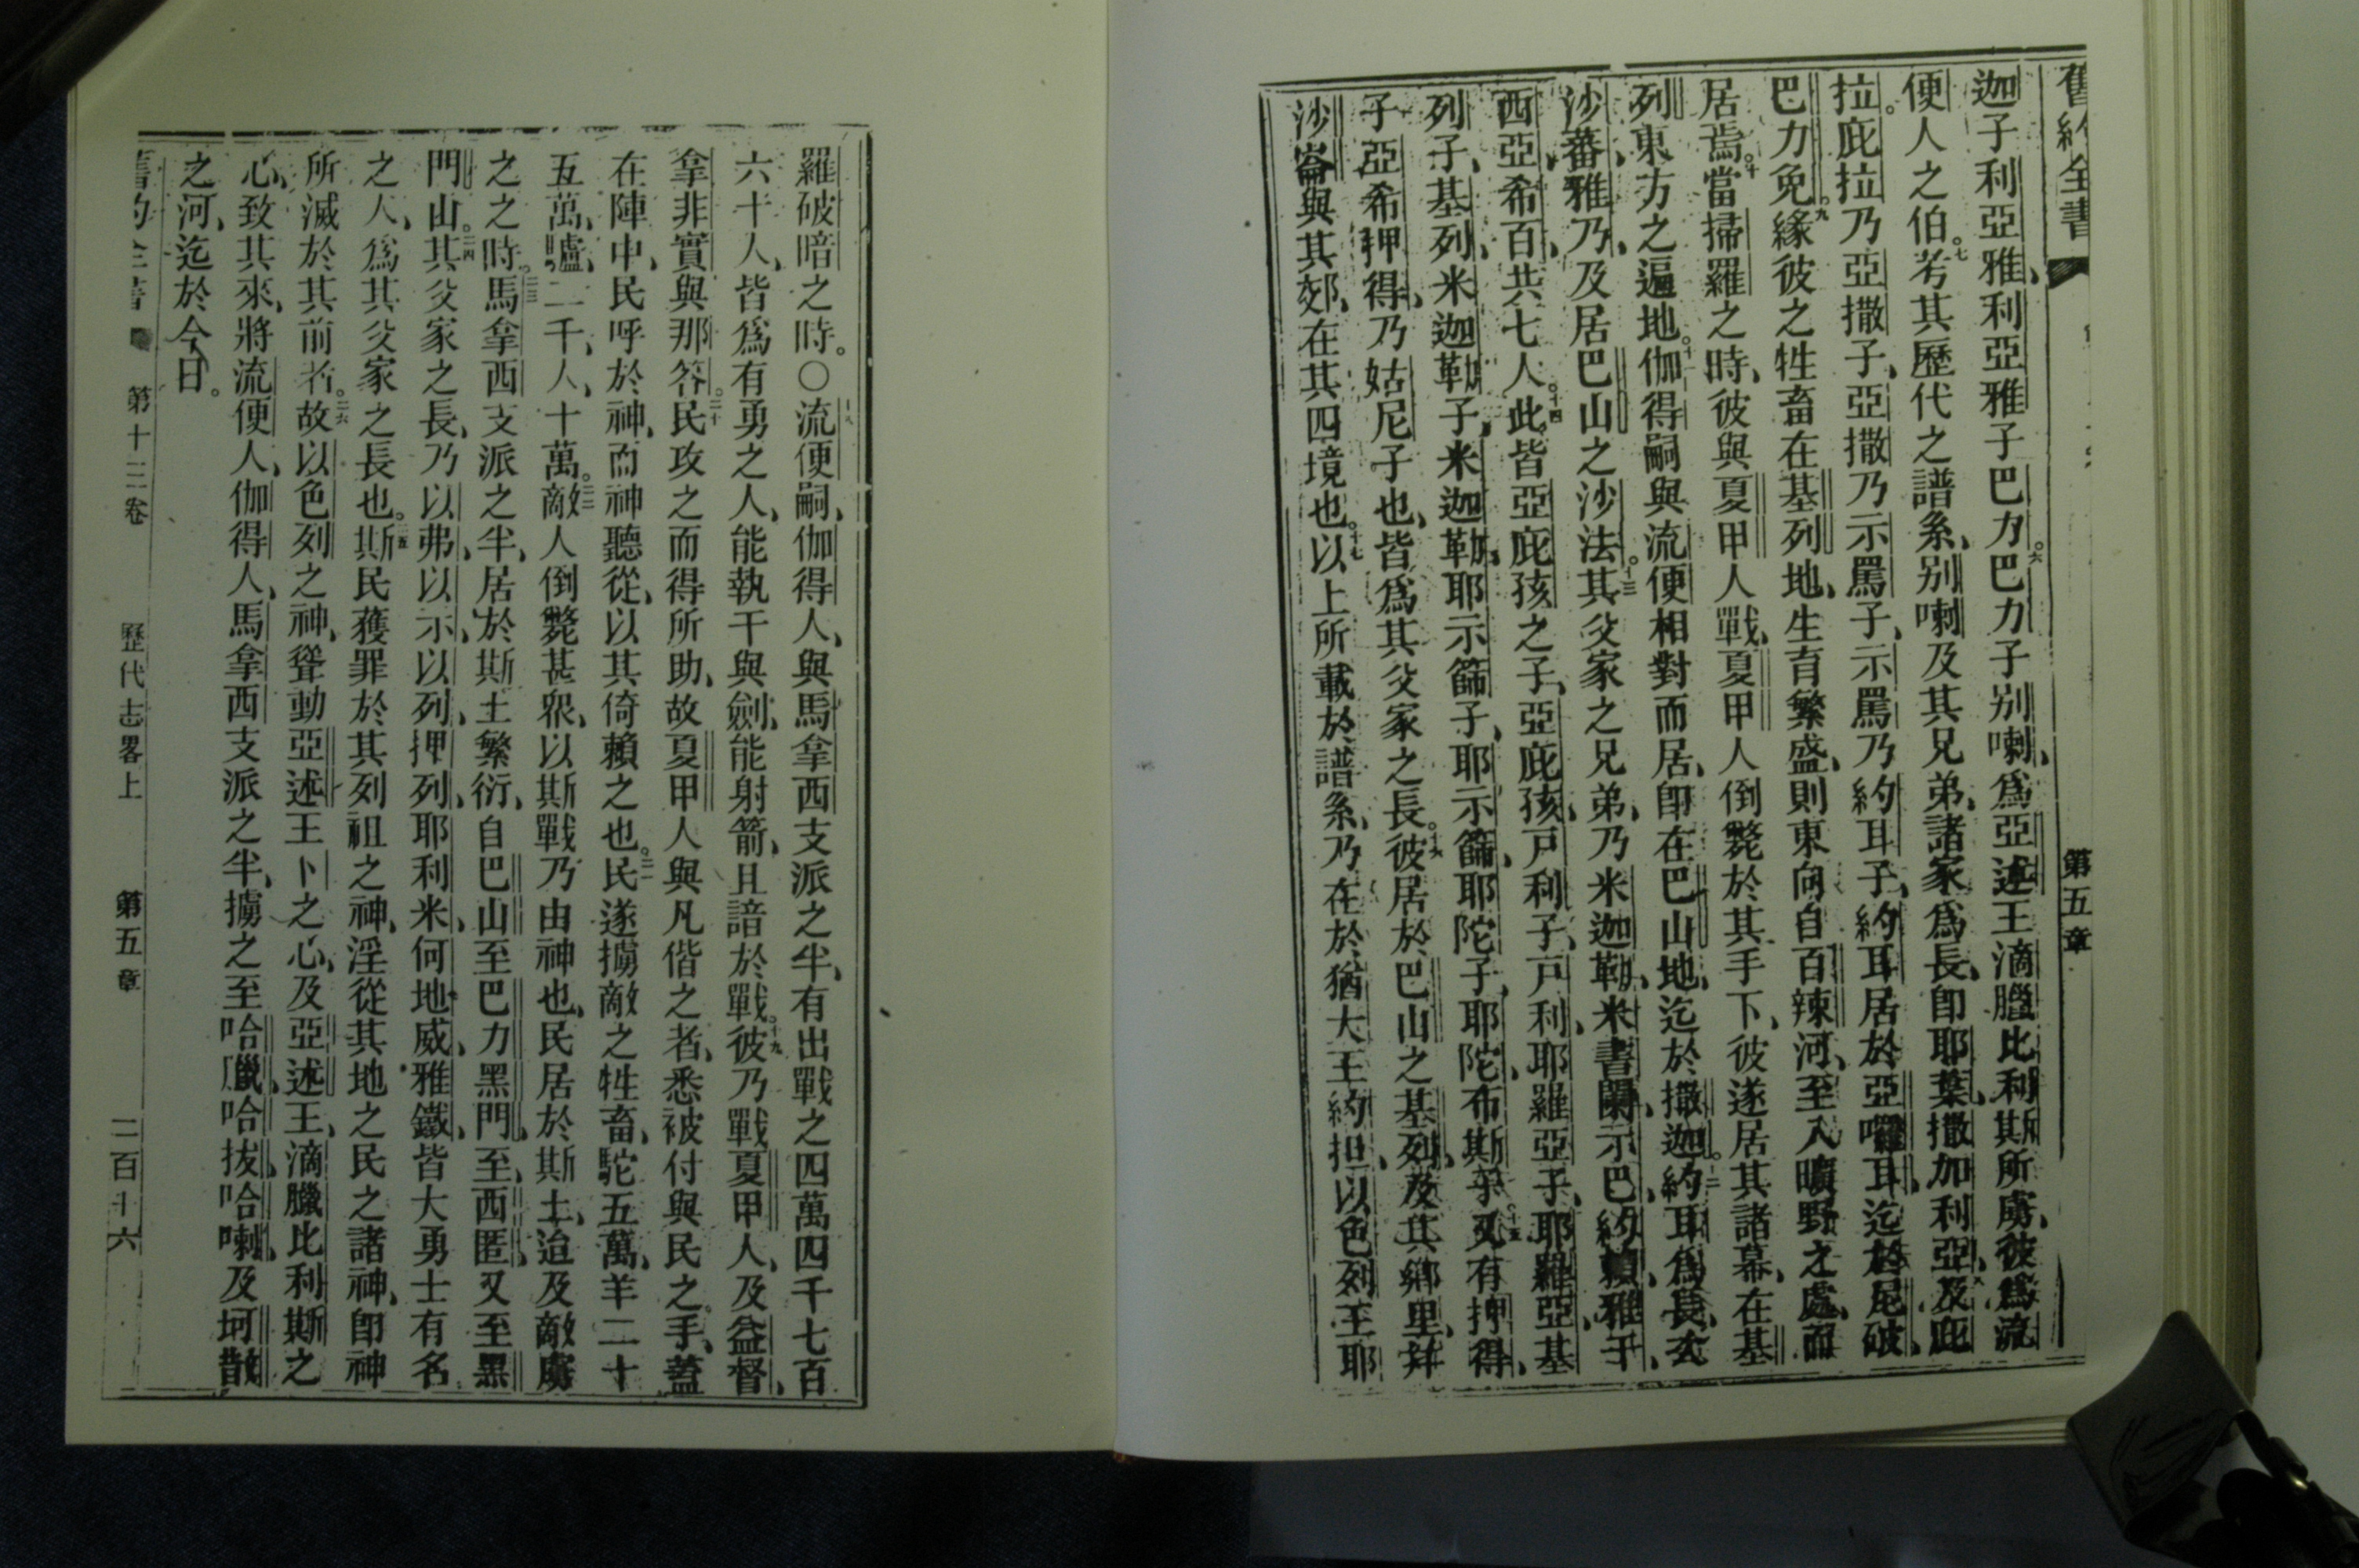 舊約全書
第五章
迦子利亞雅利亞雅子巴力。六巴力子别喇、爲亞述王滴臘比利斯所虜、彼爲流
便人之伯。七考其歷代之譜系、别喇及其兄弟、諸家爲長、卽耶葉、撒加利亞、八及庇
拉。庇拉乃亞撒子、亞撒乃示罵子、示罵乃約耳子、約耳居於亞囉耳、迄於尼破、
巴力免。九緣彼之牲畜在基列地、生育繁盛、則東向自百辣河、至入曠野之處、而
居焉。十當掃羅之時、彼與夏甲人戰、夏甲人倒斃於其手下、彼遂居其諸幕、在基
列東方之遍地。十一伽得嗣與流便相對而居、卽在巴山地、迄於撒迦。十二約耳爲長、次
沙蕃、雅乃、及居巴山之沙法。十三其父家之兄弟、乃米迦勒、米書闌、示巴、約賴、雅干、
西亞、希百、共七人。十四此皆亞庇孩之子、亞庇孩、戸利子、戸利、耶羅亞子、耶羅亞、基
列子、基列、米迦勒子、米迦勒、耶示篩子、耶示篩、耶陀子、耶陀、布斯子。十五又有押得、
子亞希押得、乃姑尼子也、皆爲其父家之長。十六彼居於巴山之基列、及其鄉里、幷
沙崙與其郊、在其四境也。十七以上所載於譜系、乃在於猶大王約担、以色列王耶
羅破暗之時。〇十八流便嗣、伽得人、與馬拿西支派之半、有出戰之四萬四千七百
六十人、皆爲有勇之人、能執干與劍、能射箭、且諳於戰。十九彼乃戰夏甲人、及益督、
拿非實與那答。二十民攻之而得所助、故夏甲人與凡偕之者、悉被付與民之手、蓋
在陣中、民呼於神、而神聽從、以其倚賴之也。二一民遂擄敵之牲畜、駝五萬、羊二十
五萬、驢二千、人十萬。二二敵人倒斃甚衆、以斯戰乃由神也、民居於斯土、迨及敵虜
之之時。二三馬拿西支派之半、居於斯土繁衍、自巴山至巴力黑門、至西匿、又至黑
門山。二四其父家之長、乃以弗、以示、以列、押列、耶利米、何地威、雅鐵、皆大勇士有名
之人、爲其父家之長也。二五斯民獲罪於其列祖之神、淫從其地之民之諸神、卽神
所滅於其前者。二六故以色列之神、聳動亞述王卜之心、及亞述王、滴臘比利斯之
心、致其來、將流便人、伽得人、馬拿西支派之半、擄之至哈臘、哈拔、哈喇、及坷散
之河、迄於今日。
舊約全書 第十三卷 歷代志畧上 第五章 二百十六